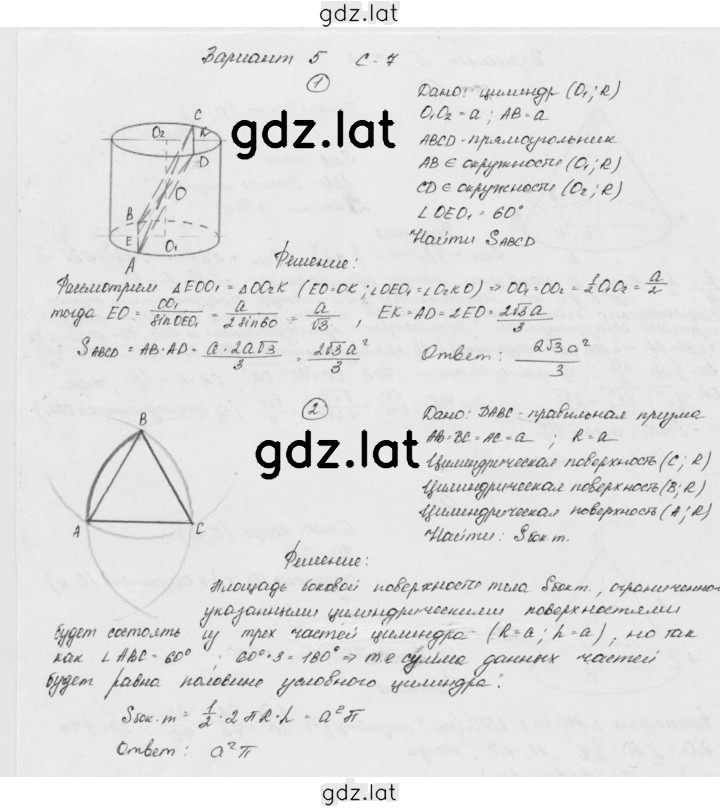 gdz.lat
Вариант 5 С-7
1
Дано: цилиндр (O₁; R)
O₁O₂ = a ; AB = a
ABCD - прямоугольник
AB ∈ окружности (O₁; R)
CD ∈ окружности (O₂; R)
∠OEO₁ = 60°
Найти S_ABCD
C
O₂ K
gdz.lat
D
O
B
E O₁
A
Решение:
Рассмотрим △EOO₁ = △OO₂K (EO=OK; ∠OEO₁=∠O₂KO) ⇒ OO₁=OO₂= 1/2 O₁O₂ = a/2
тогда EO = OO₁/sin OEO₁ = a/2 sin 60 = a/√3 , EK = AD = 2EO = 2√3a/3
S_ABCD = AB·AD = a·2a√3/3 = 2√3a²/3 Ответ: 2√3a²/3
2
Дано: DABC - правильная призма
AB=BC=AC=a ; R=a
Цилиндрическая поверхность (C; R)
Цилиндрическая поверхность (B; R)
Цилиндрическая поверхность (A; R)
Найти: Sбок.т.
B
gdz.lat
A C
Решение:
Площадь боковой поверхности тела Sбок.т., ограниченно
указанными цилиндрическими поверхностями
будет состоять из трех частей цилиндра (R=a; h=a), но так
как ∠ABC = 60° ; 60°·3 = 180° ⇒ т.е сумма данных частей
будет равна половине условного цилиндра.
Sбок.т = 1/2 · 2πR·h = a²π
Ответ: a²π
gdz.lat